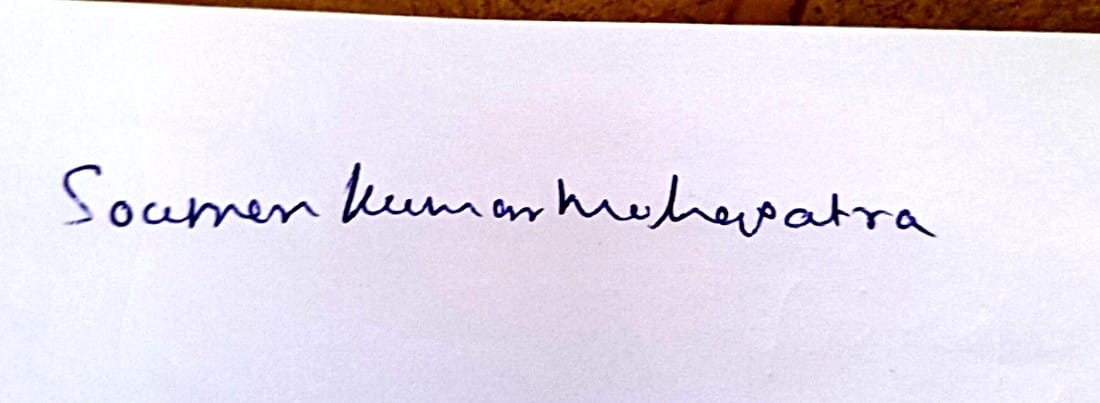 Soumen Kumar Mohapatra